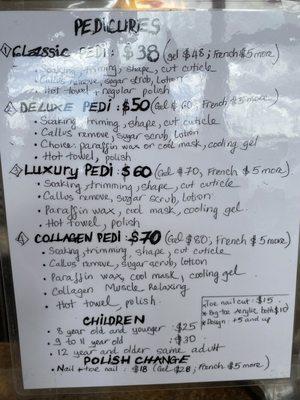 PEDICURES
① Classic PEDI : $38 (Gel $48 ; French $5 more)
• Soaking, triming, shape, cut cuticle
Callus remove, sugar scrub, Lotion
• Hot towel + regular polish
② DELUXE PEDI : $50 (Gel $60 ; French $5 more)
• Soaking triming, shape, cut cuticle
• Callus remove, sugar scrub, Lotion
• Choice paraffin wax or cool mask, cooling gel
• Hot towel, polish
③ Luxury PEDI : $60 (Gel $70, French $5 more)
• Soaking, trimming, shape, cut cuticle
• Callus remove, sugar scrub, Lotion
• Paraffin wax, cool mask, cooling gel.
• Hot towel, polish
④ COLLAGEN PEDI : $70 (Gel $80, French $5 more)
• Soaking, triming, shape, cut cuticle
• Callus remove, sugar scrub, lotion
• Paraffin wax, cool mask, cooling gel.
• Collagen Muscle Relaxing
• Hot towel, polish.
CHILDREN
• 8 year old and younger : $25
• 9 to 11 year old : $30
• 12 year and older same adult
POLISH CHANGE
• Nail + toe nail : $18 (Gel $28 ; French $5 more)
• Toe nail cut : $15
* Big-toe Acrylic both $10
* Design +5 and up